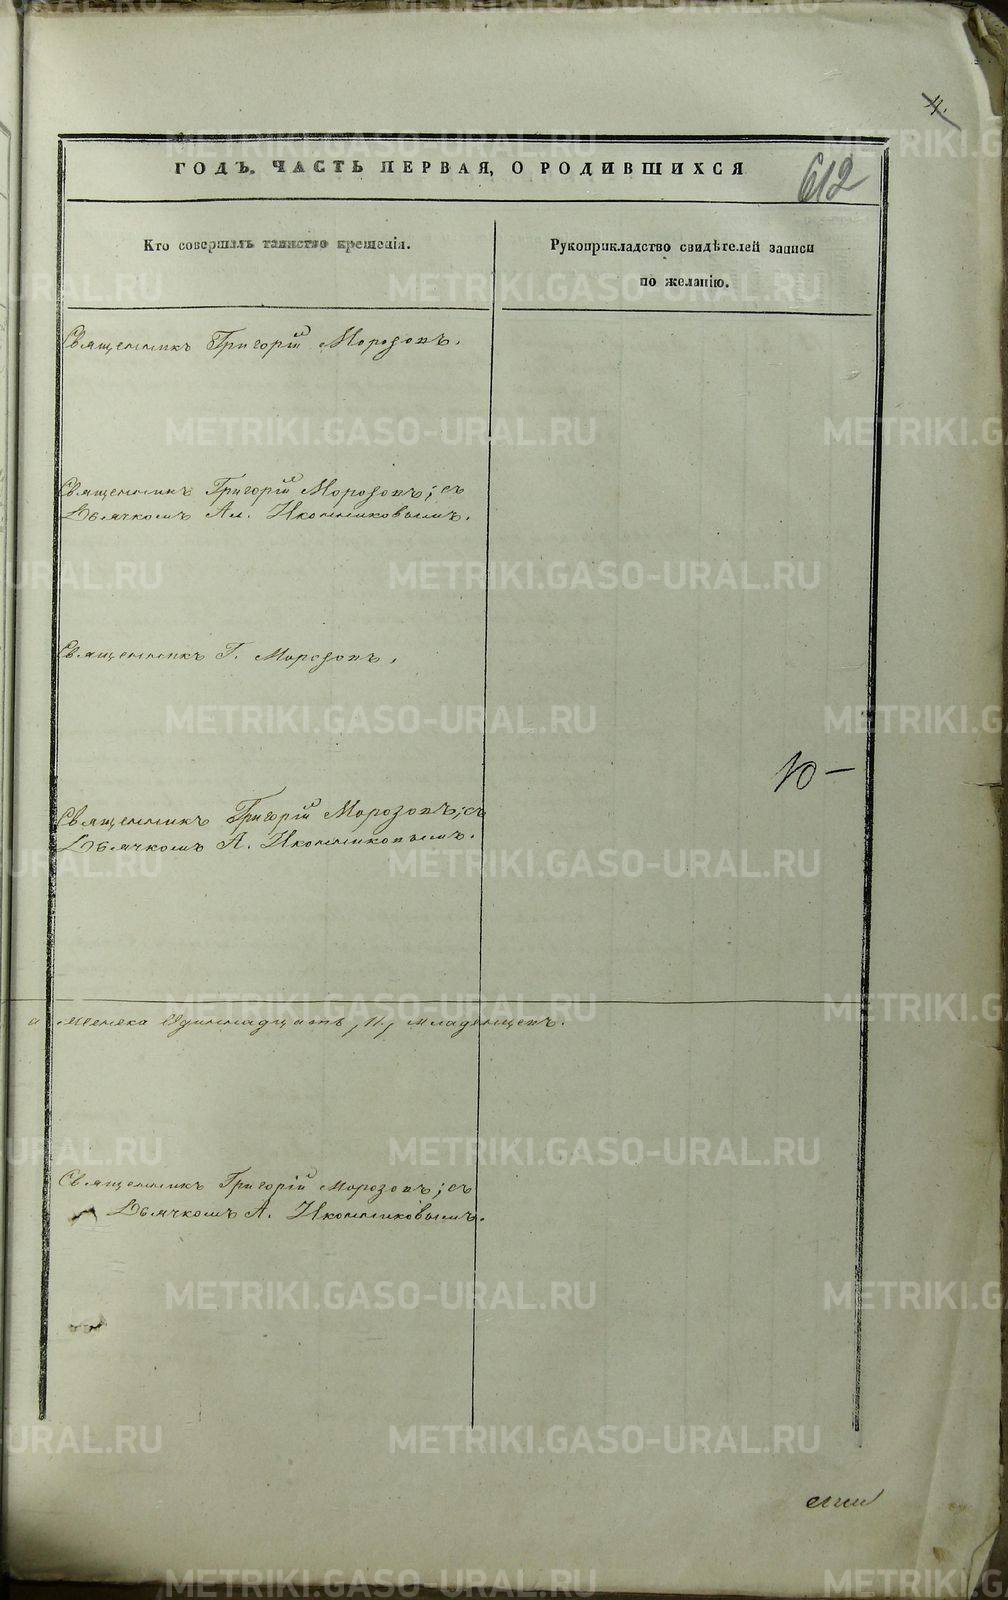 4.
ГОДЪ. ЧАСТЬ ПЕРВАЯ, О РОДИВШИХСЯ
612
Кто совершалъ таинство крещенія.
Рукоприкладство свидѣтелей записи
по желанію.
Священникъ Григорій Морозовъ.
Священникъ Григорій Морозовъ; съ
Дьячкомъ Ал. Иконниковымъ.
Священникъ Г. Морозовъ.
10 –
Священникъ Григорій Морозовъ; съ
Дьячкомъ А. Иконниковымъ.
женска Одиннадцать, 11, младенцевъ.
Священникъ Григорій Морозовъ; съ
Дьячкомъ А. Иконниковымъ.
METRIKI.GASO-URAL.RU